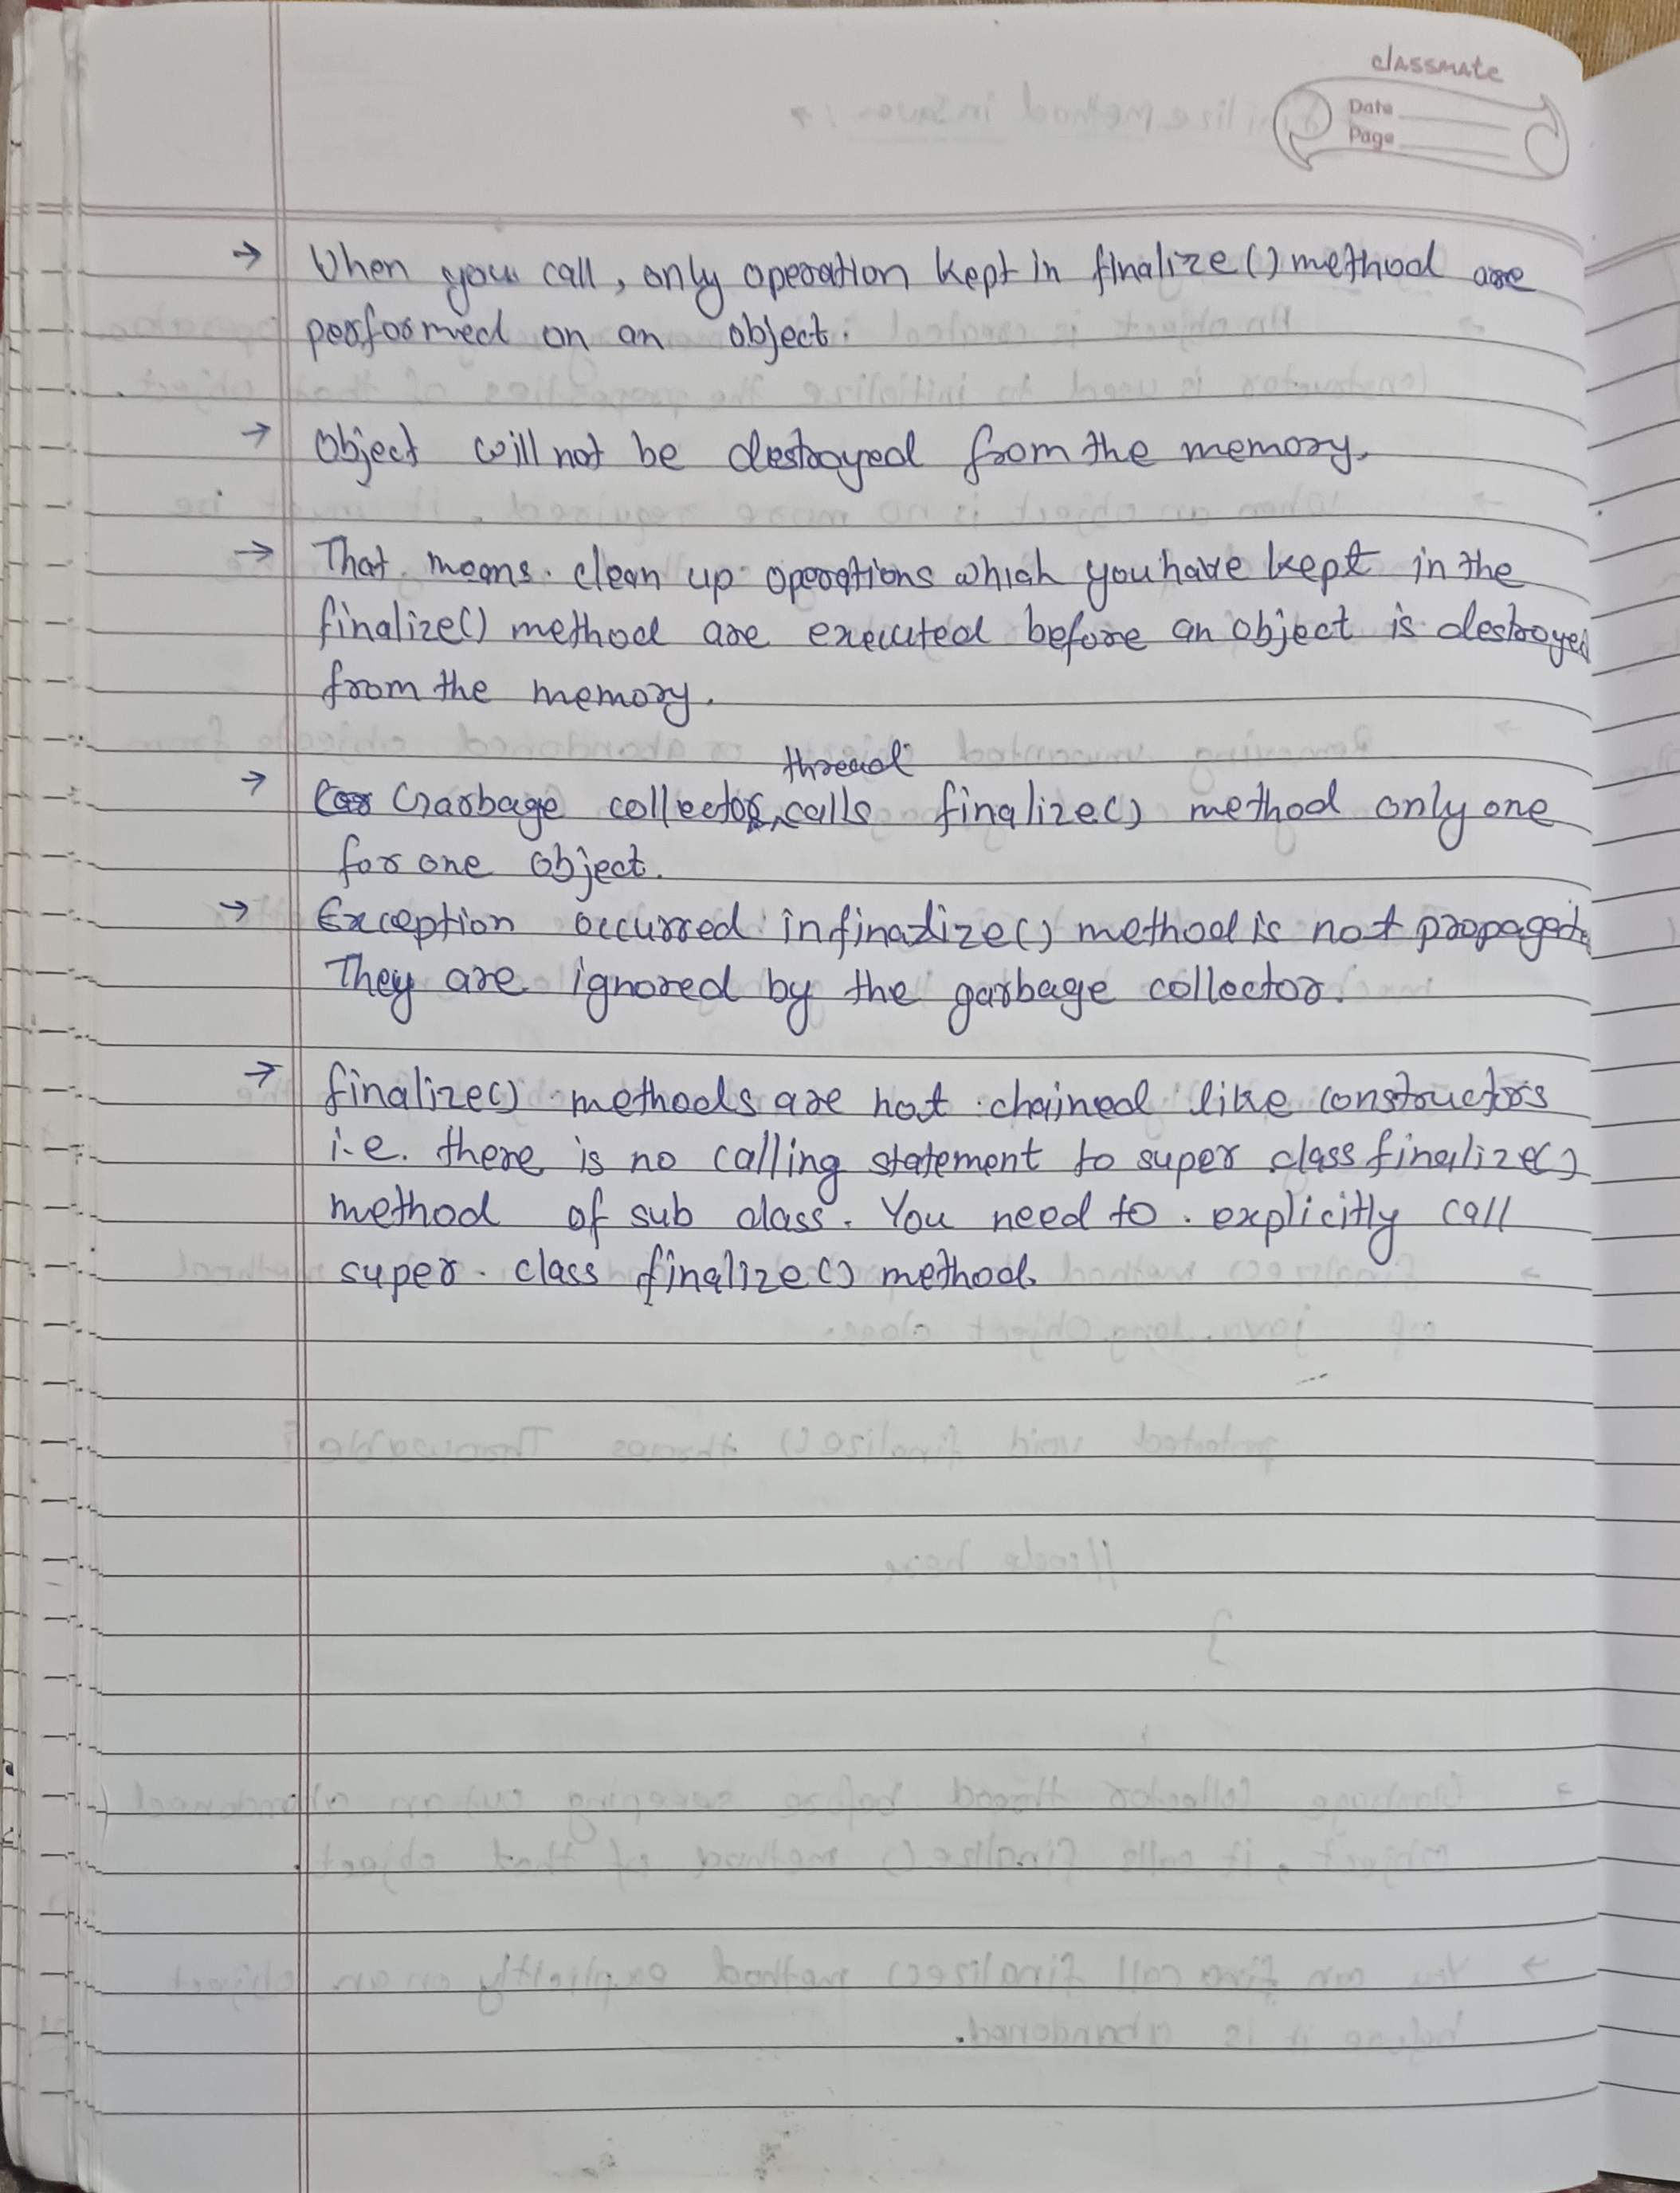 classmate
Date
Page
→ When you call, only operation kept in finalize() method are
performed on an object.
→ Object will not be destroyed from the memory.
→ That means clean up operations which you have kept in the
finalize() method are executed before an object is destroyed
from the memory.
thread
→ Garbage collector calls finalize() method only one
for one object.
→ Exception occurred in finalize() method is not propagate
They are ignored by the garbage collector.
→ finalize() methods are not chained like constructors
i.e. there is no calling statement to super class finalize()
method of sub class. You need to explicitly call
super class finalize() method.